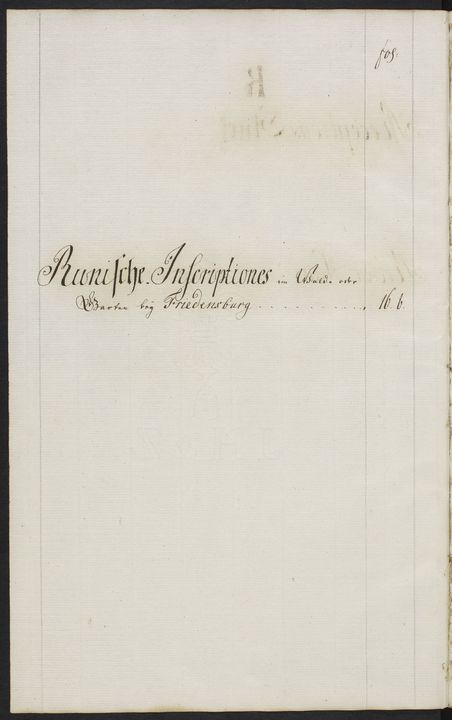 fos.
Runische Inscriptiones im Walde oder
Garten bey Friedensburg . . . . . . . . . . . 16. b.